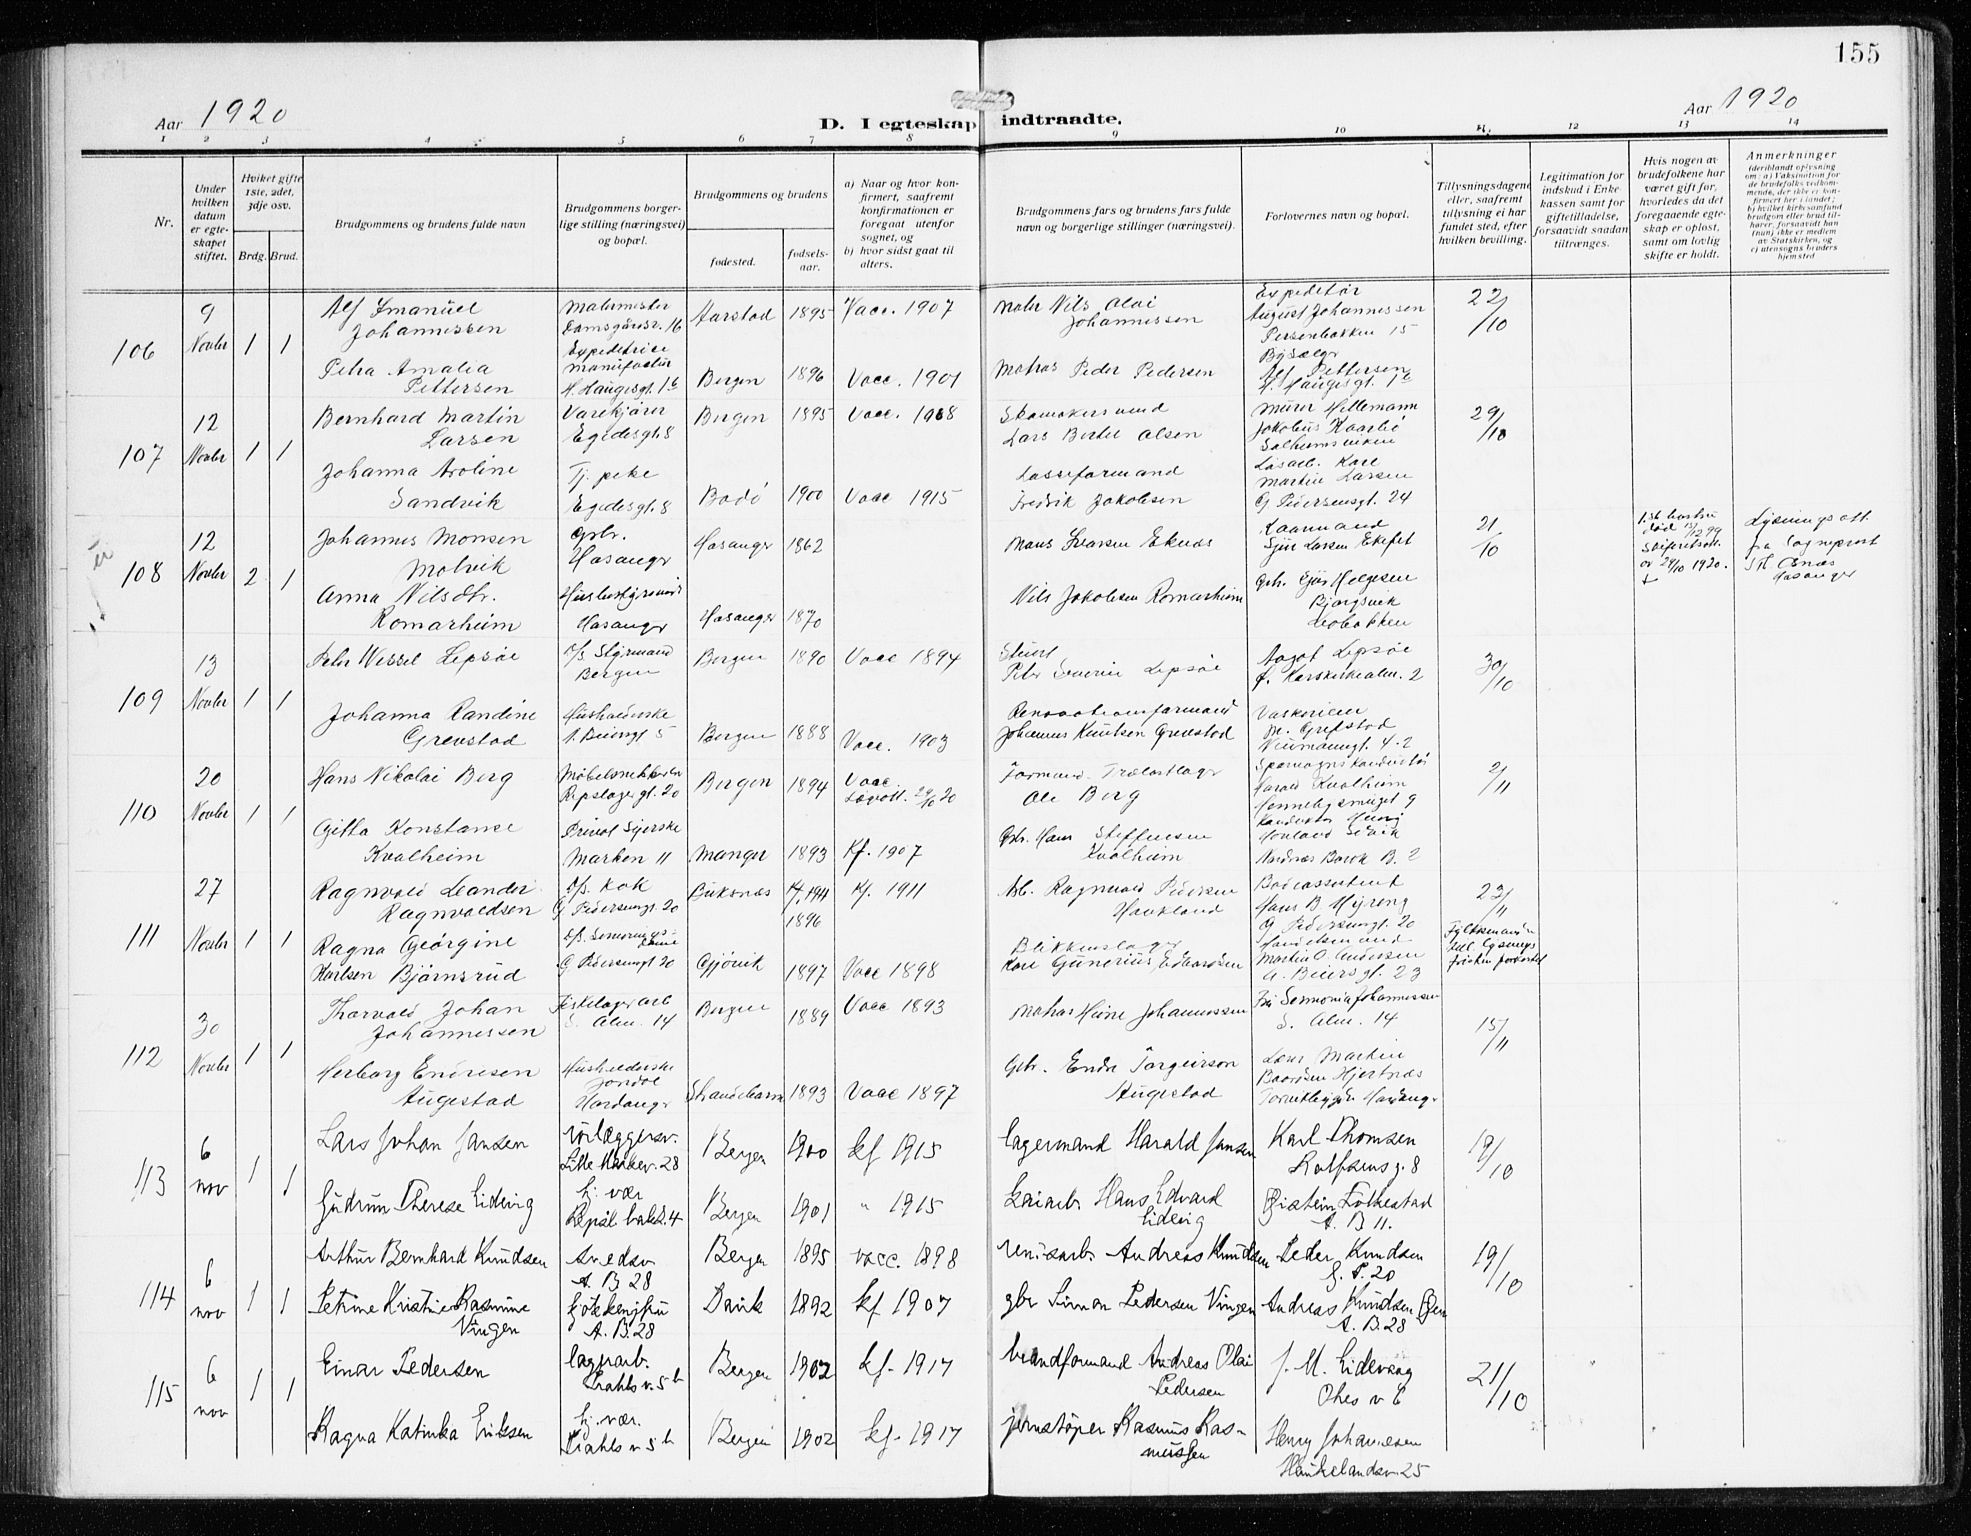 155
Aar 1920
D. I egteskap indtraadte.
Aar 1920
1 2 3 4 5 6 7 8 9 10 11. 12 13 14
Nr.
Under hvilken datum er egteskapet stiftet.
Hvilket gifte 1ste, 2det, 3dje osv.
Brdg. Brud.
Brudgommens og brudens fulde navn
Brudgommens borgerlige stilling (næringsvei) og bopæl.
Brudgommens og brudens
fødested.
fødselsaar.
a) Naar og hvor konfirmert, saafremt konfirmationen er foregaat utenfor sognet, og
b) hvor sidst gaat til alters.
Brudgommens fars og brudens fars fulde navn og borgerlige stillinger (næringsvei).
Forlovernes navn og bopæl.
Tillysningsdagene eller, saafremt tillysning ei har fundet sted, efter hvilken bevilling.
Legitimation for indskud i Enkekassen samt for giftetilladelse, forsaavidt saadan tiltrænges.
Hvis nogen av brudefolkene har været gift før, hvorledes da det foregaaende egteskap er opløst, samt om lovlig skifte er holdt.
Anmerkninger
106 9 Novbr 1 1
Alf Emanuel Johannessen
Malermester Damsgårdsv. 16
Aarstad 1895 Vacc. 1907
Maler Nils Olai Johannessen
Expeditør August Johannessen Persenbakken 15
22/10
Petra Amalia Pettersen
Expeditrice manufaktur H. Haugesgt. 1b
Bergen 1896 Vacc. 1901
Matros Peder Pedersen
Alf Pettersen H. Haugesgt. 1b
107 12 Novbr 1 1
Bernhard Martin Larsen
Varekjører Egedesgt. 8
Bergen 1895 Vacc. 1908
Lars Bertel Olsen
Murer Hillemann Jakobus Kaarbø Solheimsviken
29/10
Johanna Aroline Sandvik
Tj. pike Egedesgt. 8
Bodö 1900 Vacc 1915
Losseformand Fredrik Jakobsen
Løsarb. Karl Martin Larsen G Pedersensgt. 24
108 12 Novbr 2 1
Johannes Monsen Molvik
Gbr. Hosanger
Hosanger 1862
Mons Ivarsen Eknes
Kaarmand Sjur Larsen Ekeset
21/10
1.ste hustru død 13/12 99 Skifteattest av 29/10 1920.
Lysningsatt. fra Sogneprest Hosanger
Anna Nilsdtr. Romarheim
Husbestyrerinde Hosanger
Hosanger 1870
Nils Jakobsen Romarheim
Gbr. Ejus Helgesen Bjørgsvik Leobakken
109 13 Novbr 1 1
Peter Wessel Lepsøe
D/s. Styrmand Bergen
Bergen 1890 Vacc 1894
Stuert Peter Severin Lepsøe
Aagot Lepsøe f. Korskirkealm. 2
30/10
Johanna Randine Grevstad
Husholderske
Bergen 1888 Vacc. 1903
Renovationsformand Johannes Knutsen Grevstad
Vaskerieier M. Grefstad Neumannsgt. 4-2
110 20 Novbr 1 1
Hans Nikolai Berg
Møbelsnekker Repslagergt. 20
Bergen 1894 Vacc. Lovatt. 29/10 20
Formand Trælastlager Ole Berg
Sporvognskonduktør Harald Kvalheim
2/11
Gitta Konstanse Kvalheim
Privat Syerske Marken 11
Manger 1893 Kf. 1907
Gbr. Hans Steffensen Kvalheim
Nordnæs Barak B. 2
111 27 Novbr 1 1
Ragnvald Leander Ragnvaldsen
D/s. Kok G Pedersensgt. 20
Buksnes 1896 Kf. 1911
Arb. Ragnvald Pedersen Haukland
Badeassistent Hans B Myreng G Pedersensgt. 20
23/11
Ragna Georgine Karlsen Bjørnsrud
G Pedersensgt 20
Gjøvik 1897 Vacc 1898
Blikkenslager Karl Gunerius Edvardsen
Handelsmand Martin O. Andersen A. Beiersgt. 23
112 30 Novbr 1 1
Thorvald Johan Johannessen
Fiskelagerarb S. Alm. 14
Bergen 1889 Vacc 1893
Matros Heine Johannessen
Fru Sermonia Johannessen S. Alm. 14
15/11
Herborg Endresen Augestad
Husholderske Jondal Hardanger
Strandebarm 1893 Vacc 1897
Gbr. Endre Torgeirson Augestad
Lars Martin Baardsen Hjertnæs Hardanger
113 6 nov 1 1
Lars Johan Jansen
rörlæggersv. Lille Markev. 28
Bergen 1900 kf 1915
lagermand Harald Jansen
Karl Thomsen Rolfsensg. 8
19/10
Gudrun Therese Eidevig
hj. vær
Bergen 1901 " 1915
Kaiarb. Hans Edvard Eidevig
Øistein Folkestad A. B 11.
114 6 nov 1 1
Arthur Bernhard Knudsen
smedsv. A. B 28
Bergen 1895 vacc. 1898
renisarb. Andreas Knudsen
Peder Knudsen G. P. 20
19/10
Petrine Kristine Rasmine Vingen
kjøkkenfru A. B. 28
Davik 1892 kf 1907
gbr Simon Pedersen Vingen
Andreas Knudsen A. B. 28
115 6 nov 1 1
Einar Pedersen
lagerarb. Prahls v. 5b
Bergen 1902 kf. 1917
brandformand Andreas Olai Pedersen
J. M. Eidevaag
21/10
Ragna Katinka Eriksen
hj. vær. Prahls v 5b
Bergen 1902 kf. 1917
jernstöper Rasmus Rasmussen
Henry Johannesen Haukelandsv. 25